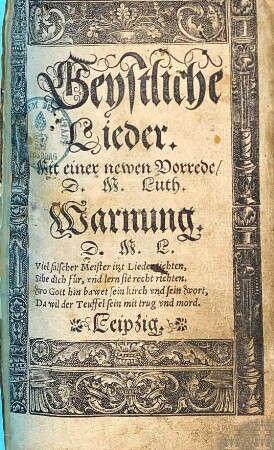 Geystliche
Lieder.
Mit einer newen Vorrede/
D. M. Luth.
Warnung.
D. M. L.
Viel falscher Meister itzt Lieder tichten,
Sihe dich für, vnd lern sie recht richten.
Wo Gott hin bawet sein kirch vnd sein wort,
Da wil der Teuffel sein mit trug vnd mord.
Leipzig.